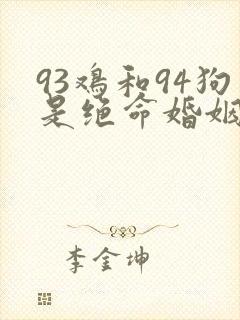 93鸡和94狗
是绝命婚姻
李金坤